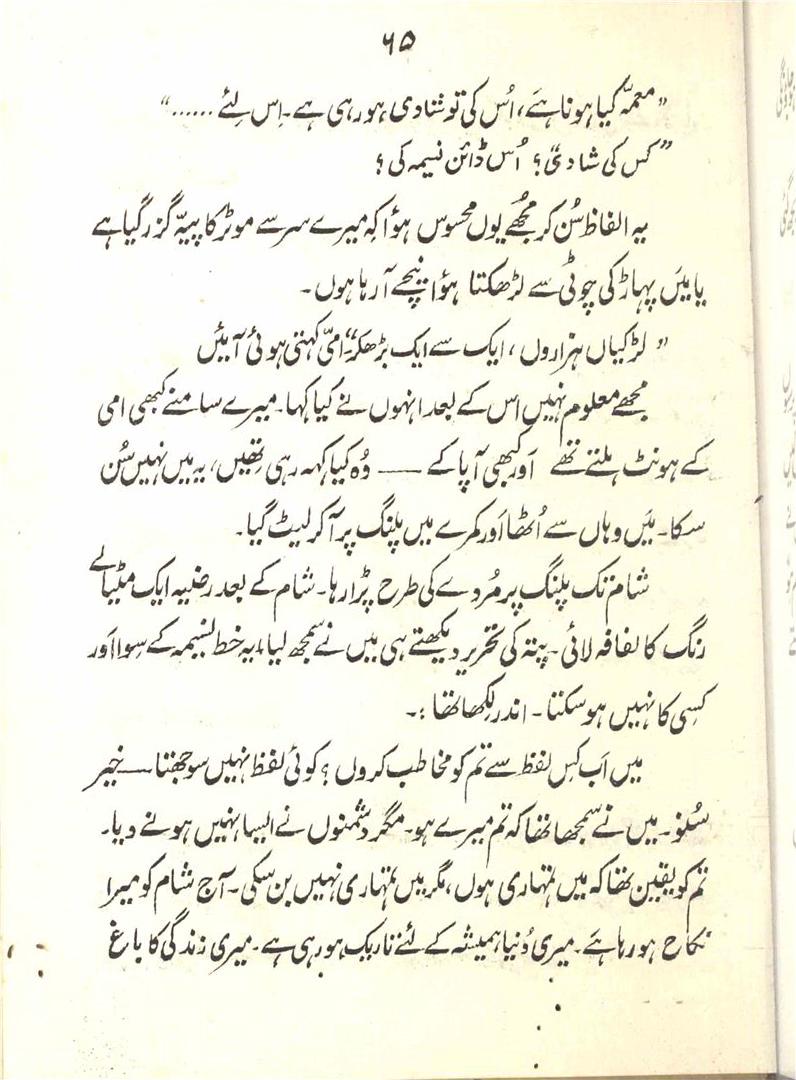 ۶۵
"معمّہ کیا ہونا ہے، اُس کی تو شادی ہو رہی ہے۔ اِس لئے ......"
"کس کی شادی؟ اُس ڈائن نسیمہ کی؟
یہ الفاظ سُن کر مجھے یوں محسوس ہؤا کہ میرے سر سے موٹر کا پہیّہ گزر گیا ہے
یا میَں پہاڑ کی چوٹی سے لڑھکتا ہؤا نیچے آ رہا ہوں۔
"لڑکیاں ہزاروں، ایک سے ایک بڑھکر" امیّ کہتی ہوئی آئیں
مجھے معلوم نہیں اس کے بعد انہوں نے کیا کہا۔ میرے سامنے کبھی امی
کے ہونٹ ہلتے تھے اَور کبھی آپا کے — وُہ کیا کہہ رہی تھیں، یہ میں نہیں سُن
سکا۔ میَں وہاں سے اُٹھا اَور کمرے میں پلنگ پر آ کر لیٹ گیا۔
شام تک پلنگ پر مُردے کی طرح پڑا رہا۔ شام کے بعد رضیہ ایک مٹیالے
رنگ کا لفافہ لائی۔ پتہ کی تحریر دیکھتے ہی میں نے سمجھ لیا، یہ خط نسیمہ کے سِوا اَور
کسِی کا نہیں ہو سکتا۔ اندر لِکھا تھا :۔
میں اَب کِس لفظ سے تم کو مخاطب کروں؟ کوئی لفظ نہیں سوجھتا — خیر
سُنو۔ میں نے سمجھا تھا کہ تم میرے ہو۔ مگر دشمنوں نے ایسا نہیں ہونے دیا۔
تم کو یقین تھا کہ میں تمہاری ہوں، مگر میں تمہاری نہیں بن سکی۔ آج شام کو میرا
نکاح ہو رہا ہَے۔ میری دُنیا ہمیشہ کے لئے تاریک ہو رہی ہے۔ میری زندگی کا باغ